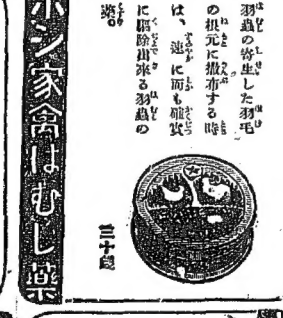 羽蟲の寄生した羽毛
の根元に撒布する時
は、速に而も確實
に驅除出來る羽蟲の
藥。
三十錢
ホシ家禽はむし藥